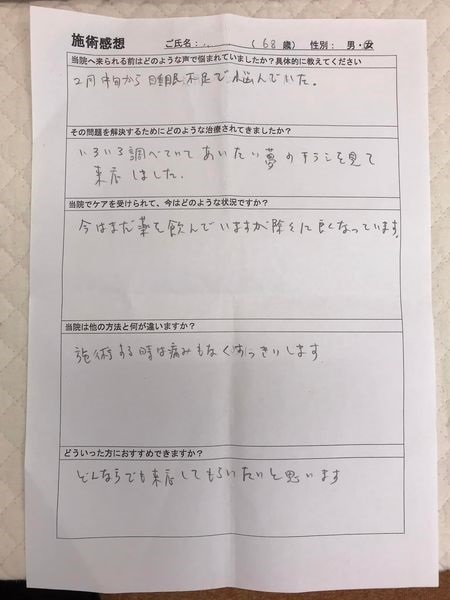 施術感想 ご氏名： (68歳) 性別： 男・女
当院へ来られる前はどのような声で悩まれていましたか？具体的に教えてください
2月中旬から睡眠不足で悩んでいた。
その問題を解決するためにどのような治療されてきましたか？
いろいろ調べていてあいたい夢のチラシを見て
来店しました。
当院でケアを受けられて、今はどのような状況ですか？
今はまだ薬を飲んでいますが除々に良くなっています。
当院は他の方法と何が違いますか？
施術する時は痛みもなくすっきいします
どういった方におすすめできますか？
どんな方でも来店してもらいたいと思います